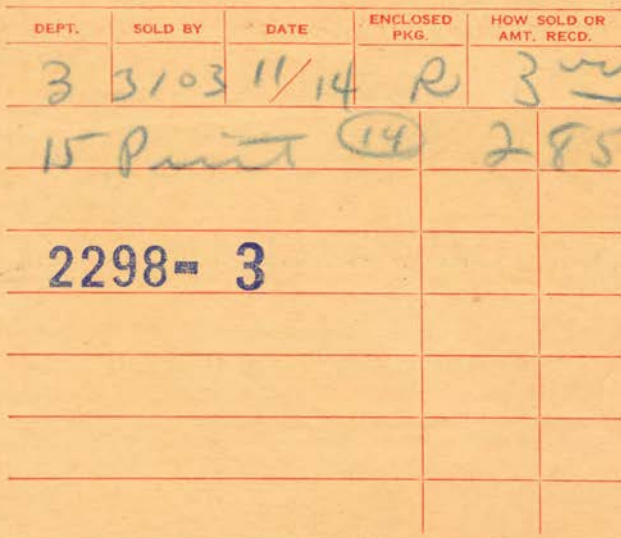 DEPT. SOLD BY DATE ENCLOSED PKG. HOW SOLD OR AMT. RECD.
3 3103 11/14 R 3
15 Print 14 2 85
2298- 3